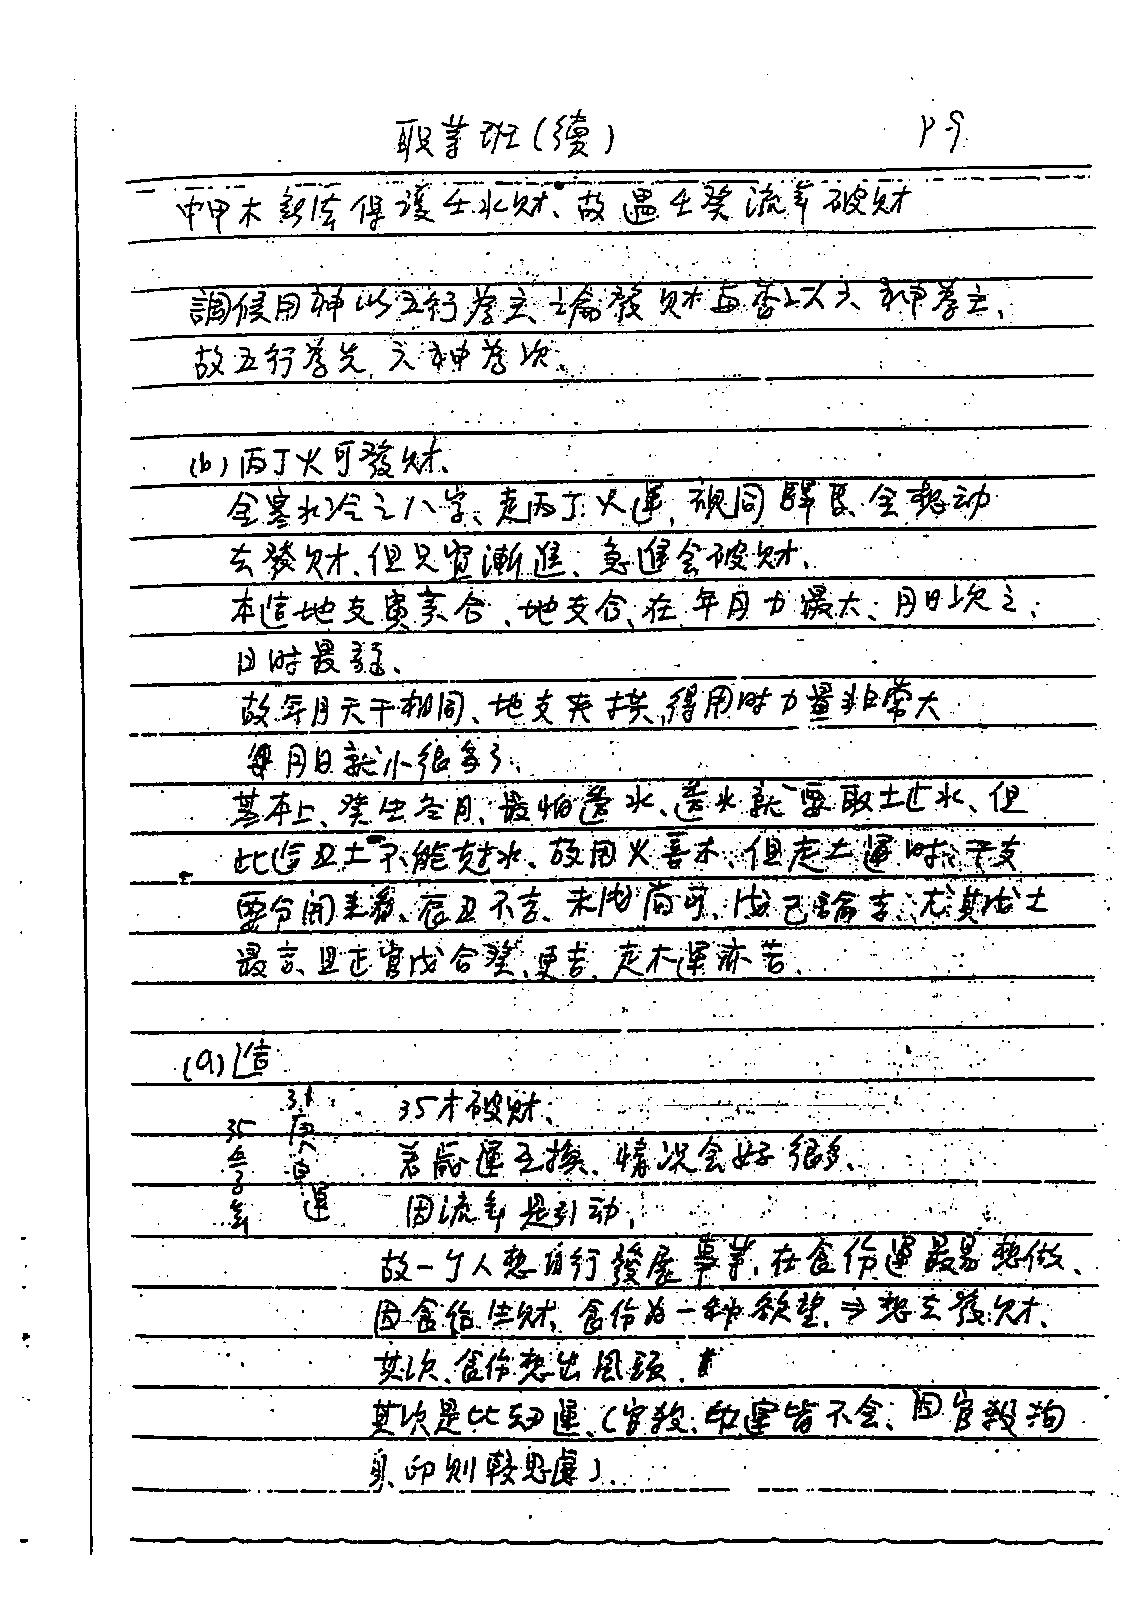 职業班(續) P.9
中甲木無法保護壬水財、故遇壬癸流年破財
調候用神以五行為主、論發財與否以六神為主、
故五行為先、六神為次、
(b)丙丁火可發財、
金寒水冷之八字、走丙丁火運、視同驛馬、会想动
去發財、但只宜漸進、急進会破財、
本造地支寅亥合、地支合、在年月力最大、月日次之、
日时最輕、
故年月天干相同、地支夾拱、得用时力量非常大
年月日就小很多了、
基本上、癸生冬月、最怕蕩水、蕩水就要取土止水、但
此造丑土不能尅水、故用火喜木、但走土運时、干支
要分開來看、辰丑不吉、未戌尚可、戊己論吉、尤其戊土
最吉、且正官戊合癸、更吉、走木運亦吉、
(a)造
31庚申運
35壬子年
35才破財、
若歲運互換、情况会好很多、
因流年是引动、
故一个人想自行發展事業、在食伤運最易想做、
因食伤生財、食伤为一种欲望、⇒想去發財、
其次、食伤想出風頭、
其次是比劫運、(官殺、印運皆不会、因官殺拘
身、印则較思慮)、